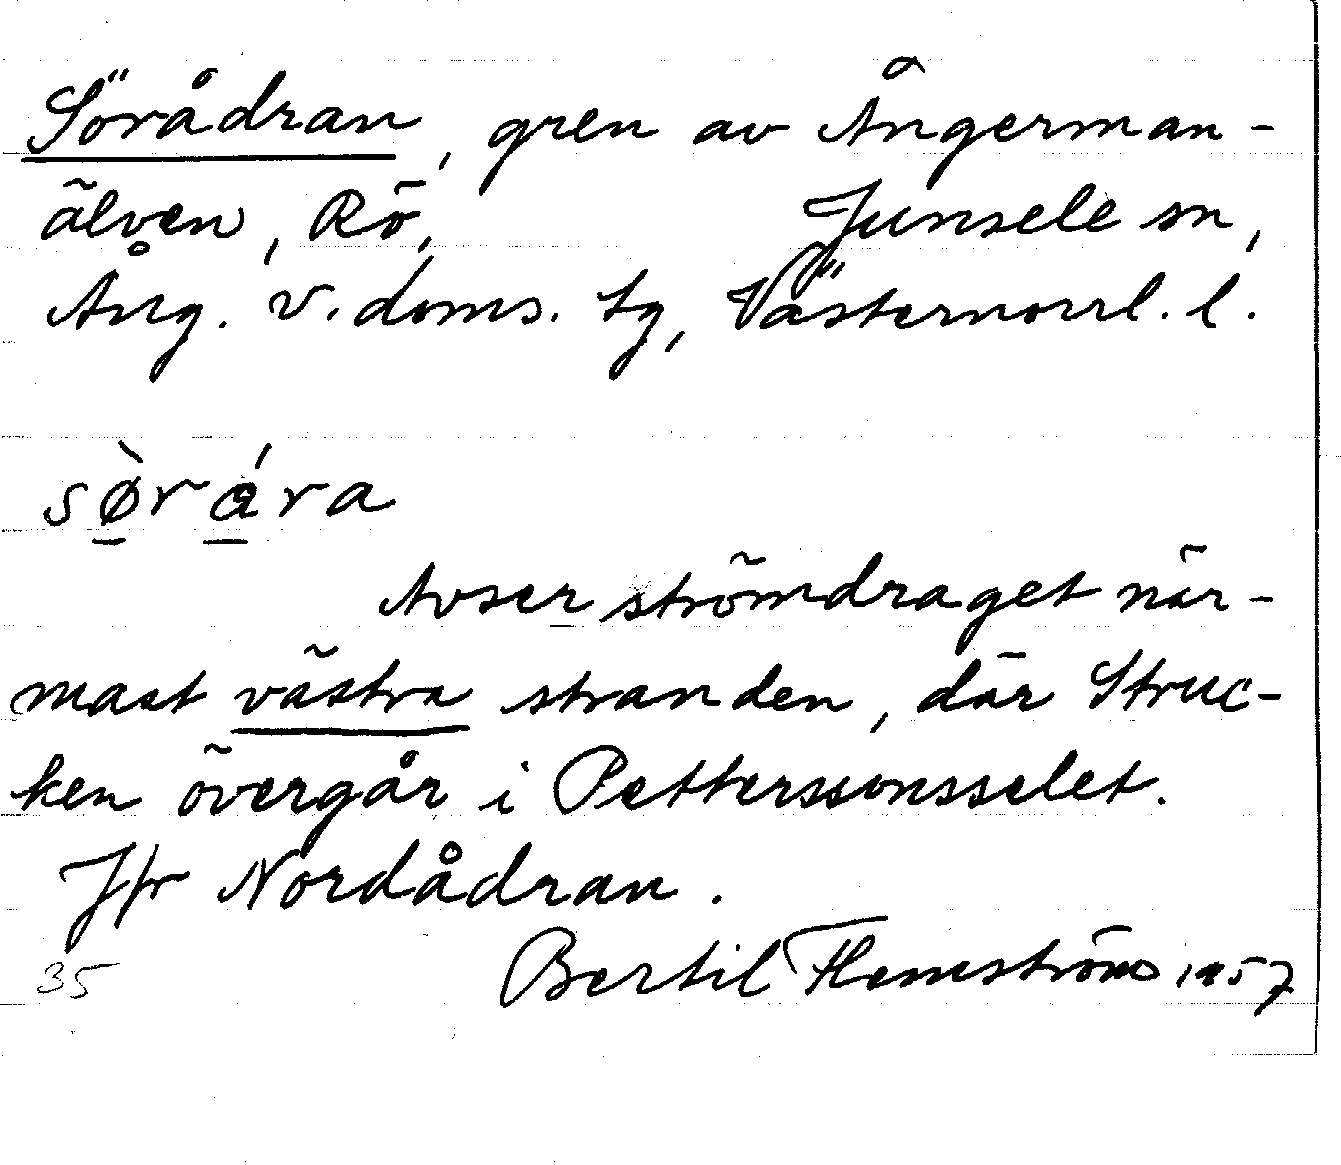 Sörådran, gren av Ångerman-
älven, Rö, Junsele sn,
Ång. v. doms. tg, Västernorrl. l.
sø̱̀rá̱ra
Avser strömdraget när-
mast västra stranden, där Struc-
ken övergår i Petterssonsselet.
Jfr Nordådran.
Bertil Flemström 1957
35